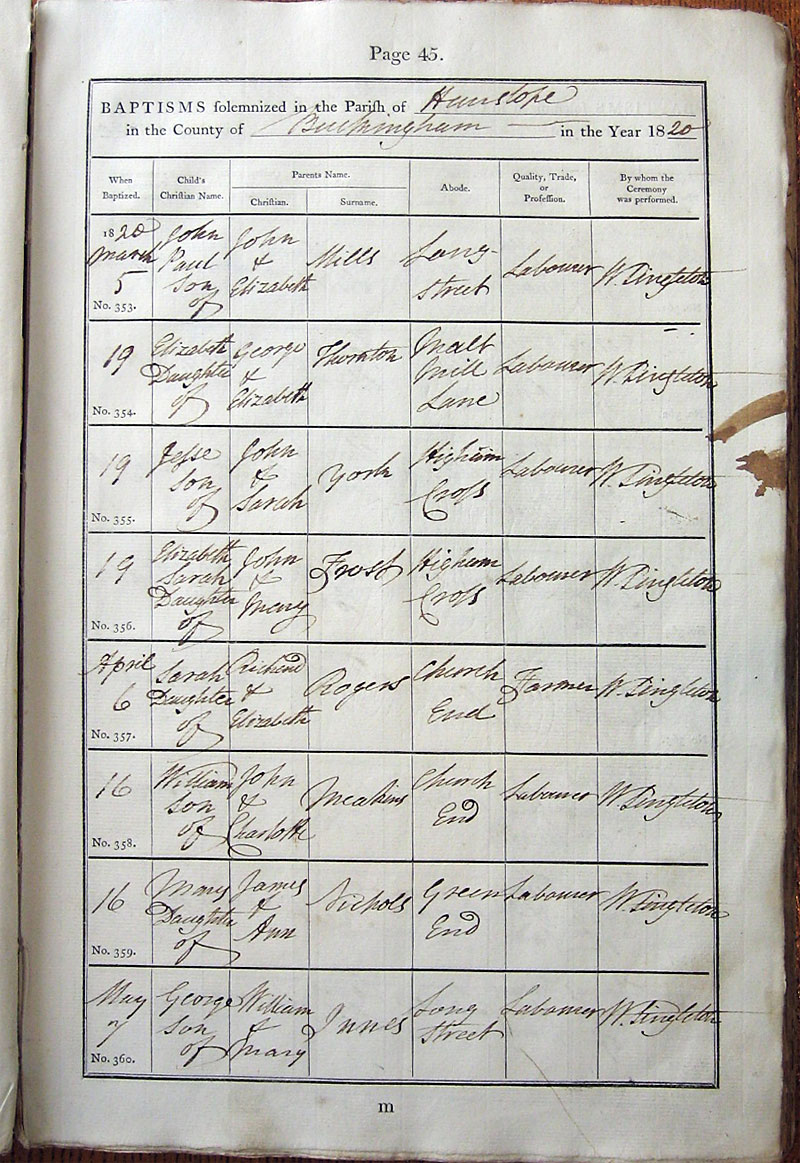 Page 45.
BAPTISMS solemnized in the Parish of Hanslope
in the County of Buckingham in the Year 1820
When Baptized. Child's Christian Name. Parents Name. Christian. Surname. Abode. Quality, Trade, or Profession. By whom the Ceremony was performed.
1820 March 5 No. 353. John Paul Son of John & Elizabeth Mills Long Street Labourer W. Singleton
19 No. 354. Elizabeth Daughter of George & Elizabeth Thornton Malt Mill Lane Labourer W. Singleton
19 No. 355. Jesse Son of John & Sarah York Higham Cross Labourer W. Singleton
19 No. 356. Elizabeth Sarah Daughter of John & Mary Frost Higham Cross Labourer W. Singleton
April 6 No. 357. Sarah Daughter of Richard & Elizabeth Rogers Church End Farmer W. Singleton
16 No. 358. William Son of John & Charlotte Meakins Church End Labourer W. Singleton
16 No. 359. Mary Daughter of James & Ann Nichols Green End Labourer W. Singleton
May 7 No. 360. George Son of William & Mary Innes Long Street Labourer W. Singleton
m